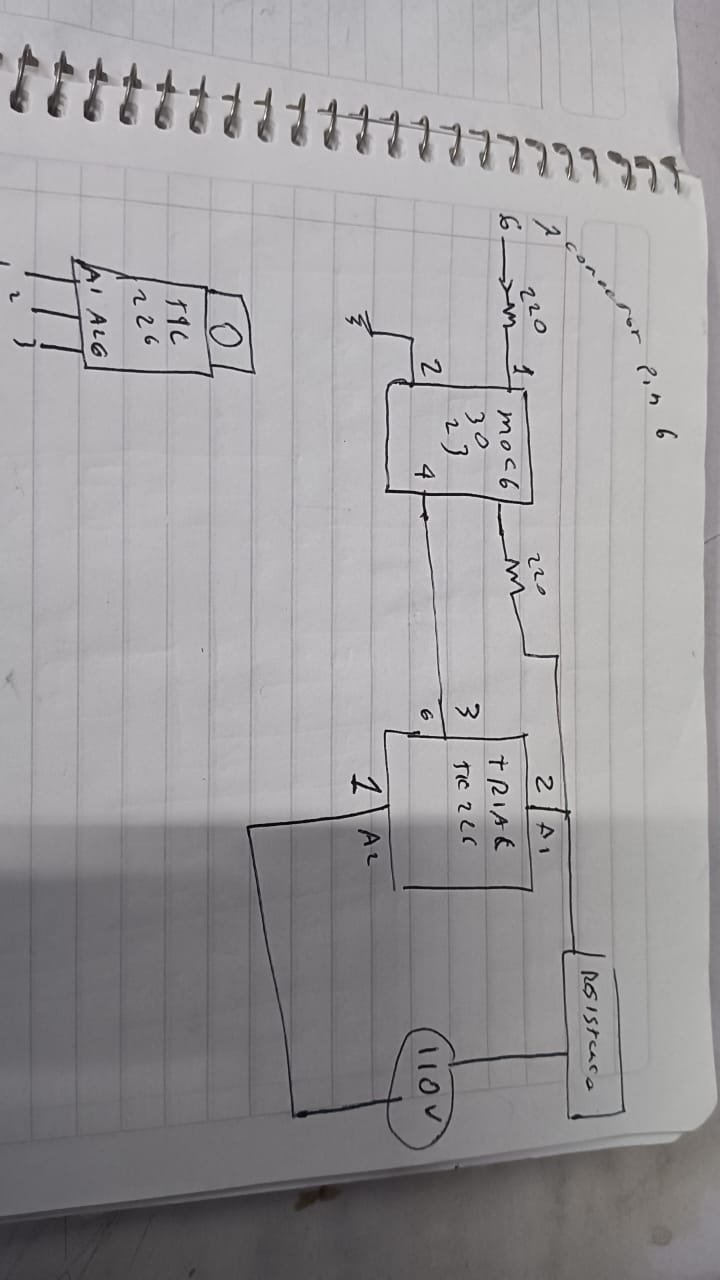 1 conector Pin 6
6
220
1
2
MOC 6
30
23
4
220
3
6
2
A1
TRIAC
TIC 226
1
A2
Resistencia
110V
O
TIC
226
A1 A2 G
1 2 3